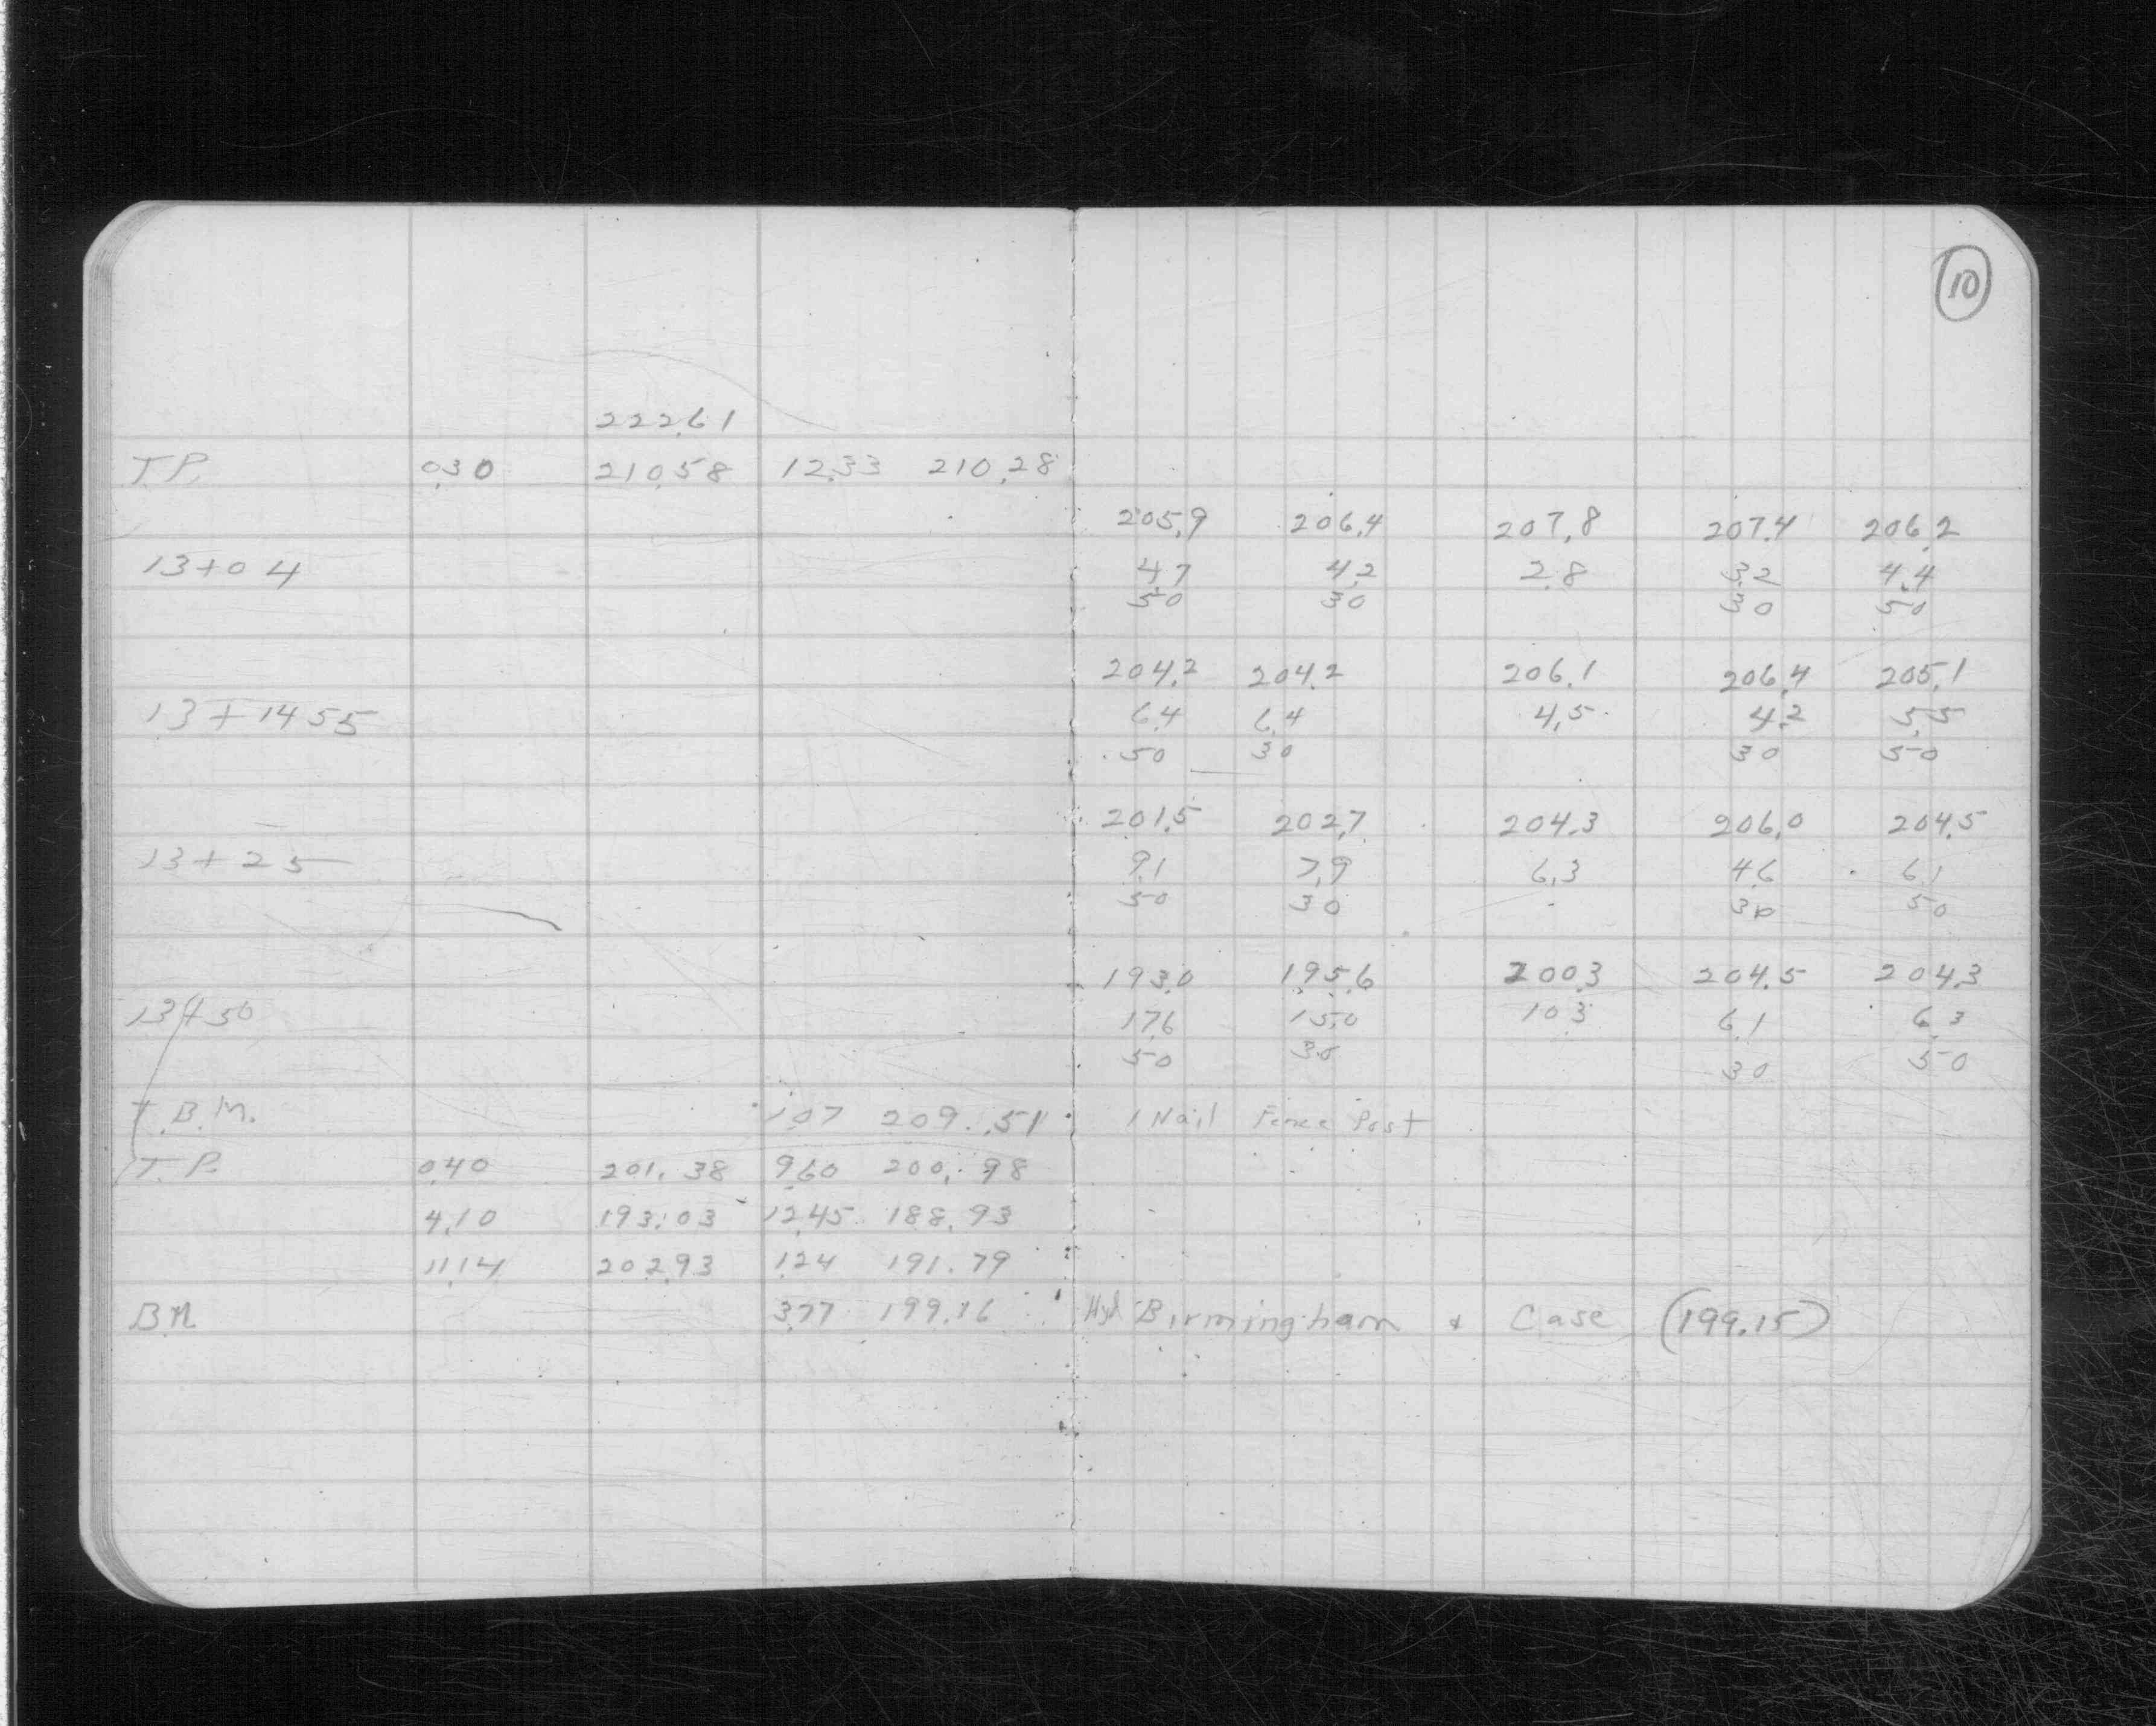 10
222.61
T.P. 0.30 210.58 12.33 210.28
205.9 206.4 207.8 207.4 206.2
13+04 4.7 4.2 2.8 3.2 4.4
50 30 30 50
204.2 204.2 206.1 206.4 205.1
13+14 55 6.4 6.4 4.5 4.2 5.5
50 30 30 50
201.5 202.7 204.3 206.0 204.5
13+25 9.1 7.9 6.3 4.6 6.1
50 30 30 50
193.0 195.6 200.3 204.5 204.3
13+50 17.6 15.0 10.3 6.1 6.3
50 30 30 50
T.B.M. 1.07 209.51 1 Nail Fence Post
T.P. 0.40 201.38 9.60 200.98
4.10 193.03 12.45 188.93
11.14 202.93 1.24 191.79
B.M. 3.77 199.16 Hyd Birmingham + Case (199.15)